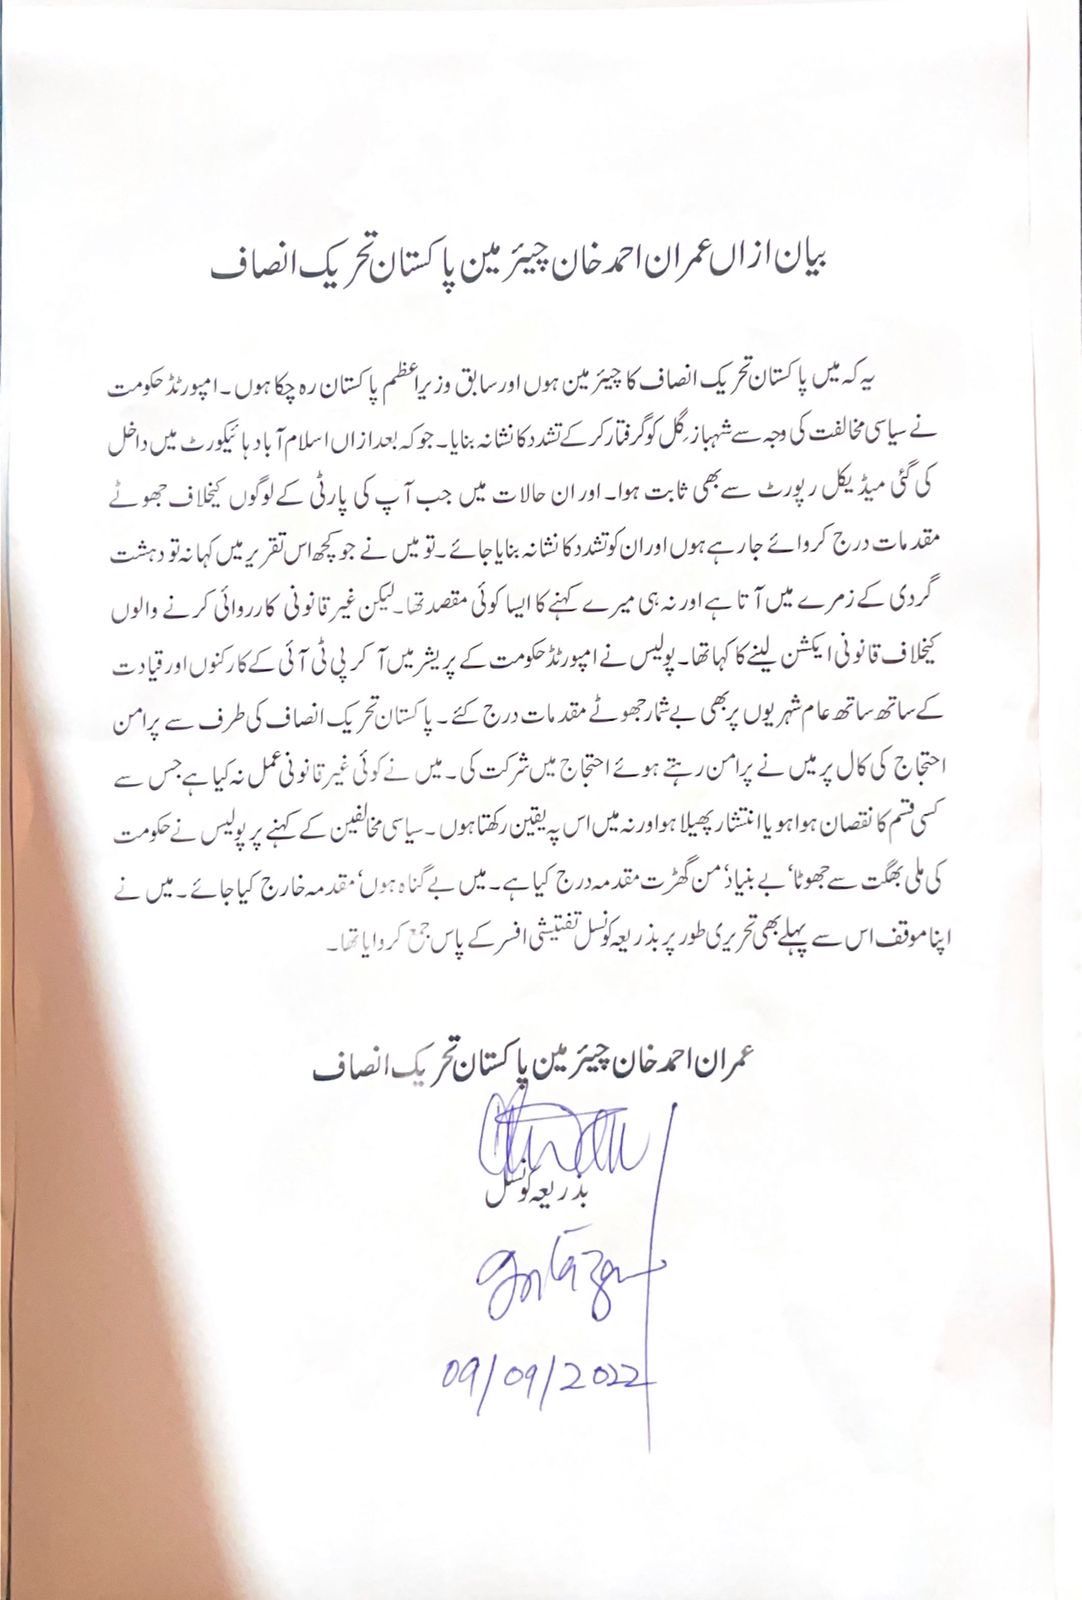 بیان ازاں عمران احمد خان چیئرمین پاکستان تحریک انصاف
یہ کہ میں پاکستان تحریک انصاف کا چیئرمین ہوں اور سابق وزیراعظم پاکستان رہ چکا ہوں۔ امپورٹڈ حکومت
نے سیاسی مخالفت کی وجہ سے شہباز گل کو گرفتار کر کے تشدد کا نشانہ بنایا۔ جو کہ بعد ازاں اسلام آباد ہائیکورٹ میں داخل
کی گئی میڈیکل رپورٹ سے بھی ثابت ہوا۔ اور ان حالات میں جب آپ کی پارٹی کے لوگوں کیخلاف جھوٹے
مقدمات درج کروائے جا رہے ہوں اور ان کو تشدد کا نشانہ بنایا جائے۔ تو میں نے جو کچھ اس تقریر میں کہا نہ تو دہشت
گردی کے زمرے میں آتا ہے اور نہ ہی میرے کہنے کا ایسا کوئی مقصد تھا۔ لیکن غیر قانونی کارروائی کرنے والوں
کیخلاف قانونی ایکشن لینے کا کہا تھا۔ پولیس نے امپورٹڈ حکومت کے پریشر میں آ کر پی ٹی آئی کے کارکنوں اور قیادت
کے ساتھ ساتھ عام شہریوں پر بھی بے شمار جھوٹے مقدمات درج کئے۔ پاکستان تحریک انصاف کی طرف سے پرامن
احتجاج کی کال پر میں نے پرامن رہتے ہوئے احتجاج میں شرکت کی۔ میں نے کوئی غیر قانونی عمل نہ کیا ہے جس سے
کسی قسم کا نقصان ہوا ہو یا انتشار پھیلا ہو اور نہ میں اس پہ یقین رکھتا ہوں۔ سیاسی مخالفین کے کہنے پر پولیس نے حکومت
کی ملی بھگت سے جھوٹا' بے بنیاد' من گھڑت مقدمہ درج کیا ہے۔ میں بے گناہ ہوں' مقدمہ خارج کیا جائے۔ میں نے
اپنا موقف اس سے پہلے بھی تحریری طور پر بذریعہ کونسل تفتیشی افسر کے پاس جمع کروایا تھا۔
عمران احمد خان چیئرمین پاکستان تحریک انصاف
بذریعہ کونسل
09/09/2022